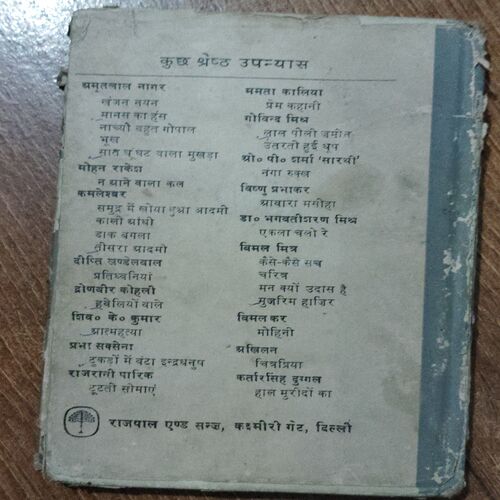 कुछ श्रेष्ठ उपन्यास
अमृतलाल नागर
खंजन नयन
मानस का हंस
नाच्यौ बहुत गोपाल
भूख
सात घूंघट वाला मुखड़ा
मोहन राकेश
न आने वाला कल
कमलेश्वर
समुद्र में खोया हुआ आदमी
काली आंधी
डाक बंगला
तीसरा आदमी
दीप्ति खण्डेलवाल
प्रतिध्वनियां
द्रोणवीर कोहली
हवेलियों वाले
शिव० के० कुमार
आत्महत्या
प्रभा सक्सेना
टुकड़ों में बंटा इन्द्रधनुष
राजरानी पारिक
टूटती सीमाएं
ममता कालिया
प्रेम कहानी
गोविन्द मिश्र
लाल पीली ज़मीन
उतरती हुई धूप
ओ० पी० शर्मा 'सारथी'
नंगा रुक्ख
विष्णु प्रभाकर
आवारा मसीहा
डा० भगवतीशरण मिश्र
एकला चलो रे
बिमल मित्र
कैसे-कैसे सच
चरित्र
मन क्यों उदास है
मुजरिम हाज़िर
बिमल कर
मोहिनी
अखिलन
चित्रप्रिया
कर्तारसिंह दुग्गल
हाल मुरीदों का
राजपाल एण्ड सन्ज़, कश्मीरी गेट, दिल्ली